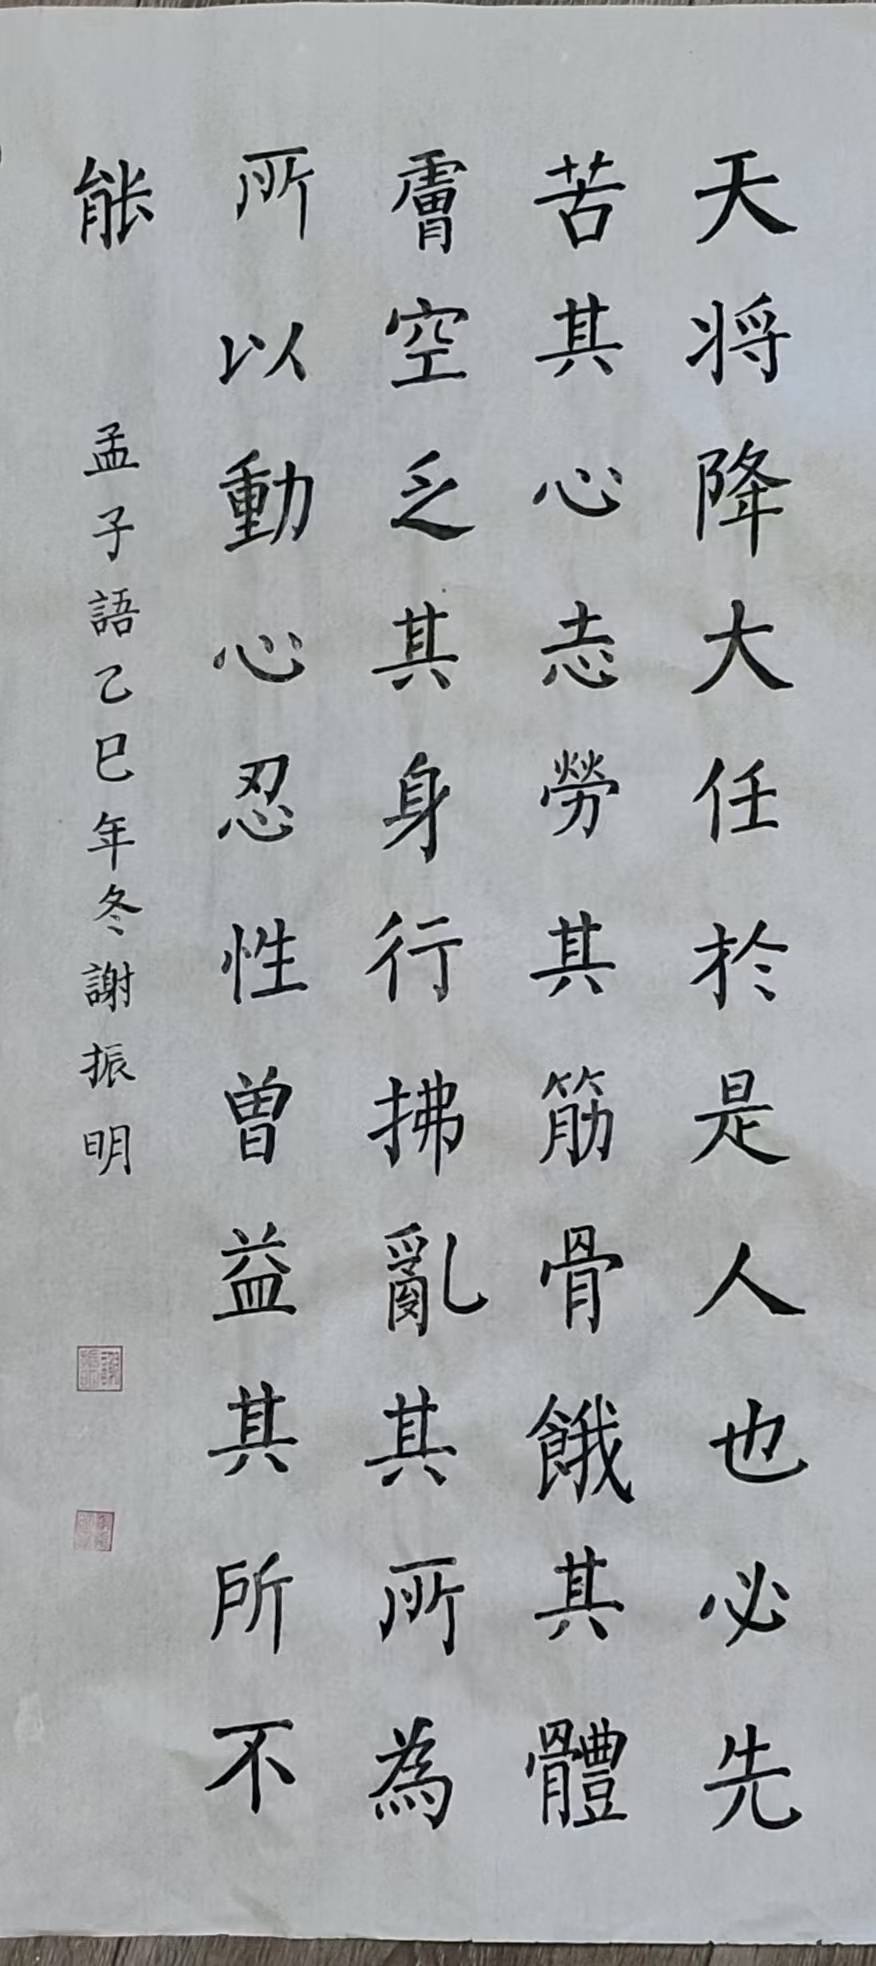 天将降大任於是人也必先
苦其心志勞其筋骨餓其體
膚空乏其身行拂亂其所為
所以動心忍性曾益其所不
能
孟子語乙巳年冬謝振明